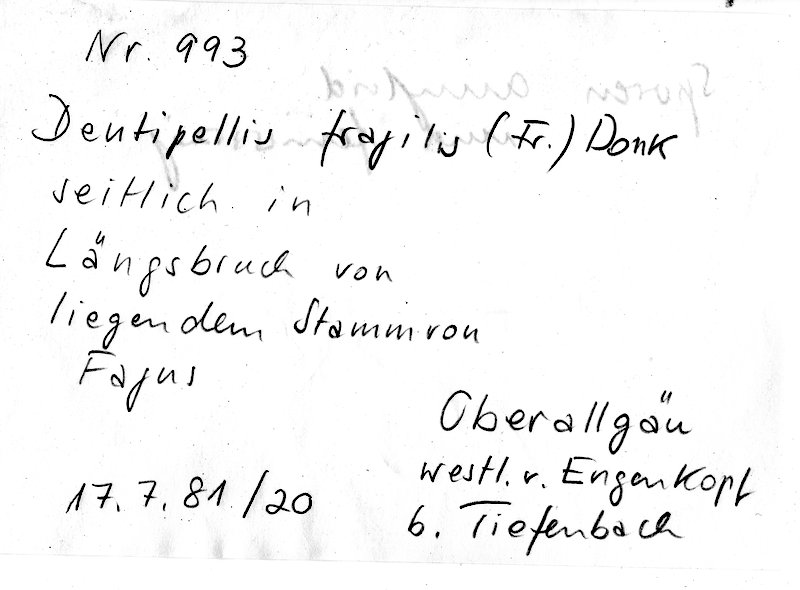 Nr. 993
Dentipellis fragilis (Fr.) Donk
seitlich in
Längsbruch von
liegendem Stamm von
Fagus
Oberallgäu
westl. v. Engenkopf
b. Tiefenbach
17.7.81/20